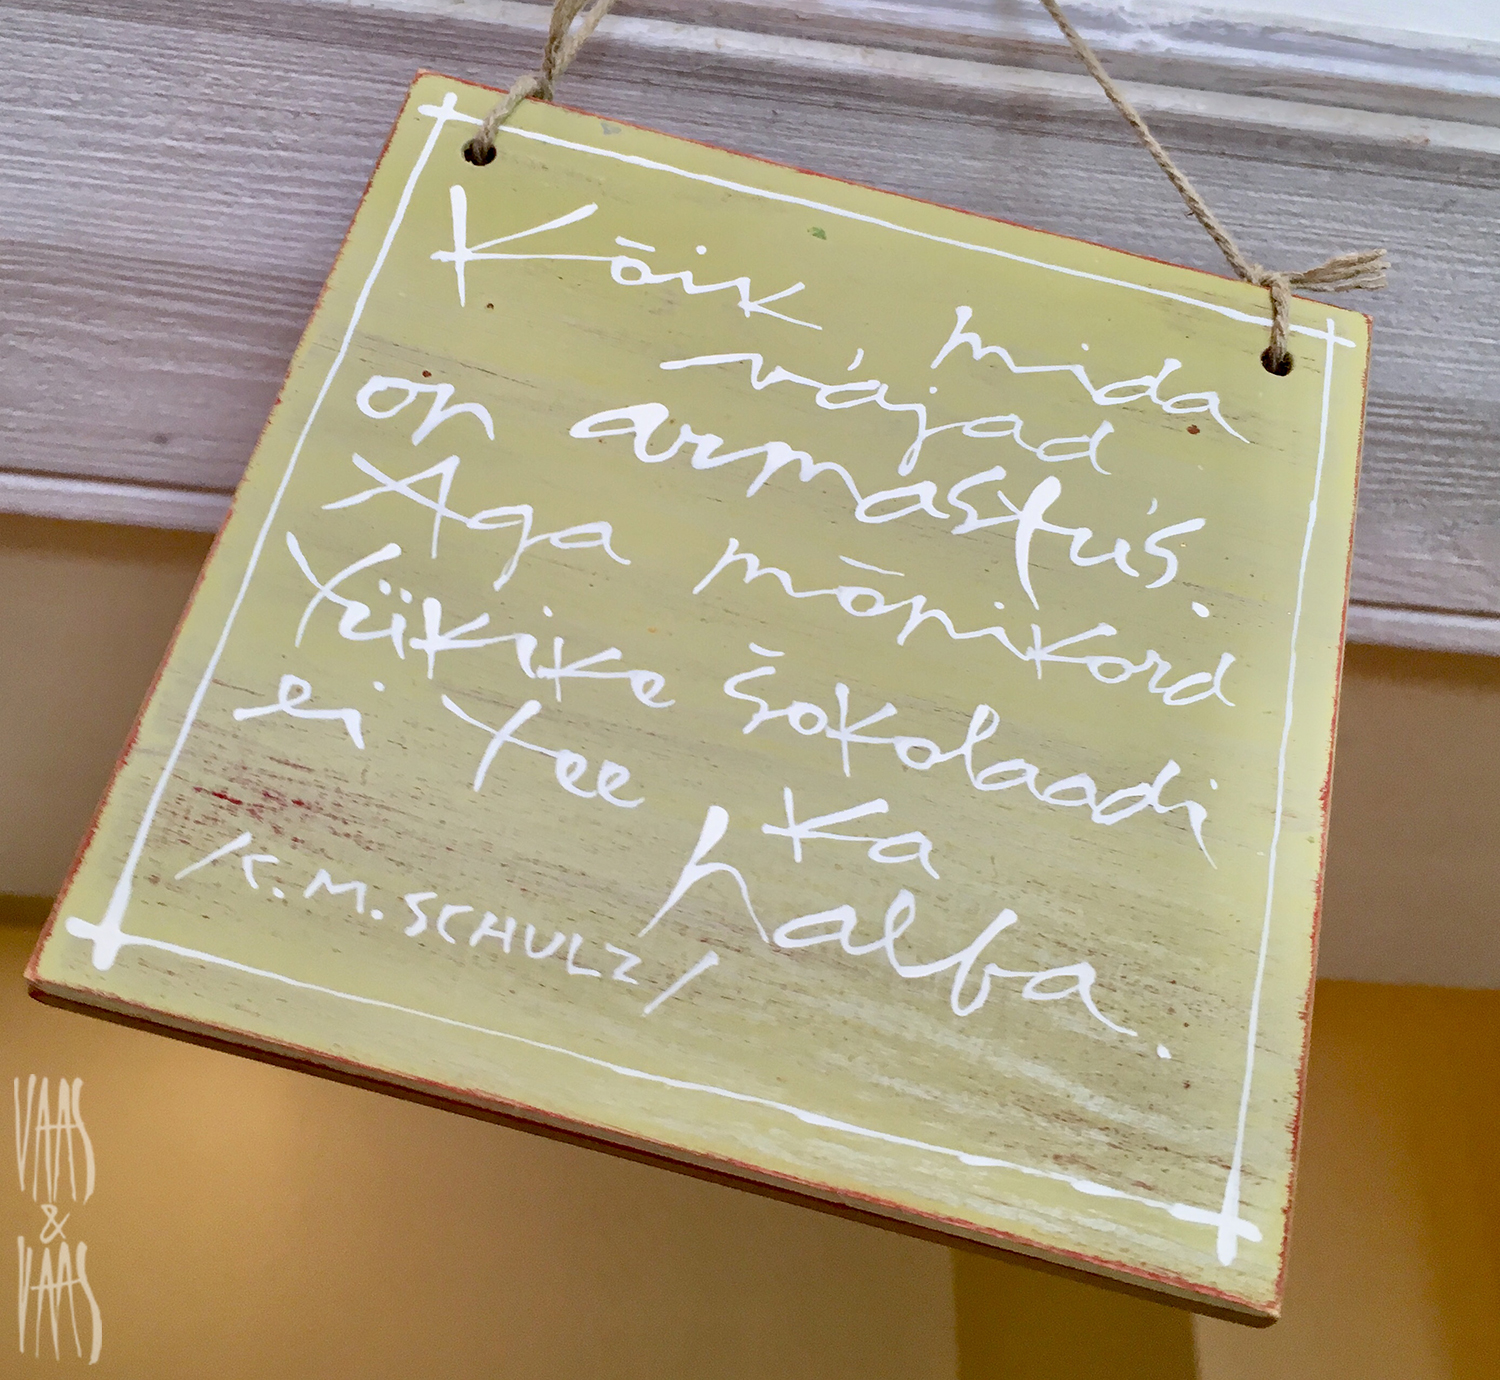 Kõik mida
vajad
on armastus.
Aga mõnikord
tükike šokolaadi
ei tee ka
halba.
/K. M. SCHULZ/
VAAS
&
VAAS